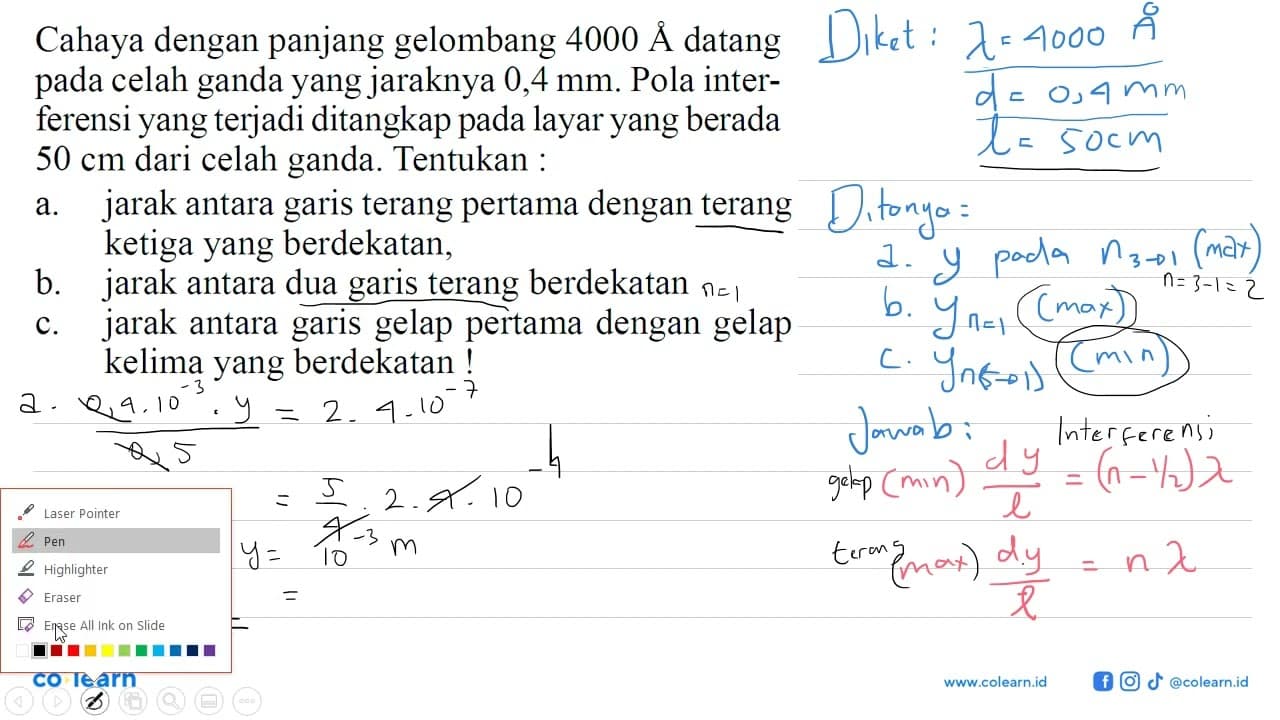 Cahaya dengan panjang gelombang 4000 Å datang
pada celah ganda yang jaraknya 0,4 mm. Pola inter-
ferensi yang terjadi ditangkap pada layar yang berada
50 cm dari celah ganda. Tentukan :
a. jarak antara garis terang pertama dengan terang
ketiga yang berdekatan,
b. jarak antara dua garis terang berdekatan n=1
c. jarak antara garis gelap pertama dengan gelap
kelima yang berdekatan !
a. 0,4.10⁻³ . y / 0,5 = 2. 4.10⁻⁷
= 5/4 . 2. 4. 10⁻⁴
y = 10⁻³ m
=
Diket : λ = 4000 Å
d = 0,4 mm
l = 50 cm
Ditanya =
a. y pada n₃→₁ (max)
n = 3-1 = 2
b. y n=1 (max)
c. y n(5→1) (min)
Jawab : Interferensi
gelap (min) dy/l = (n - 1/2) λ
terang (max) d.y/l = n λ
Laser Pointer
Pen
Highlighter
Eraser
Erase All Ink on Slide
co learn
www.colearn.id
@colearn.id